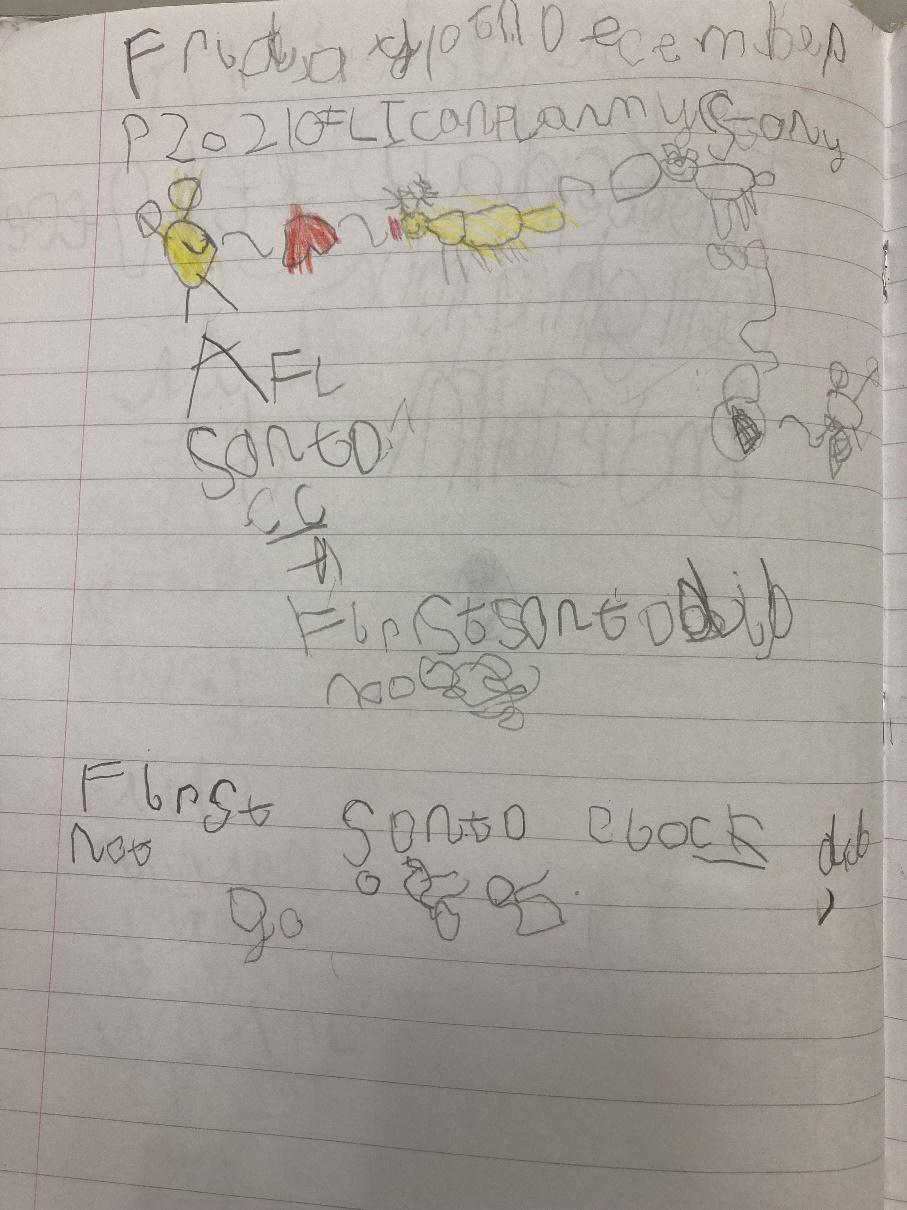 Friday 10th December
r 2021 OFLI can plan my Story
AFL
Santa
CC
First santa did
noo
First Santa clock did
not
go